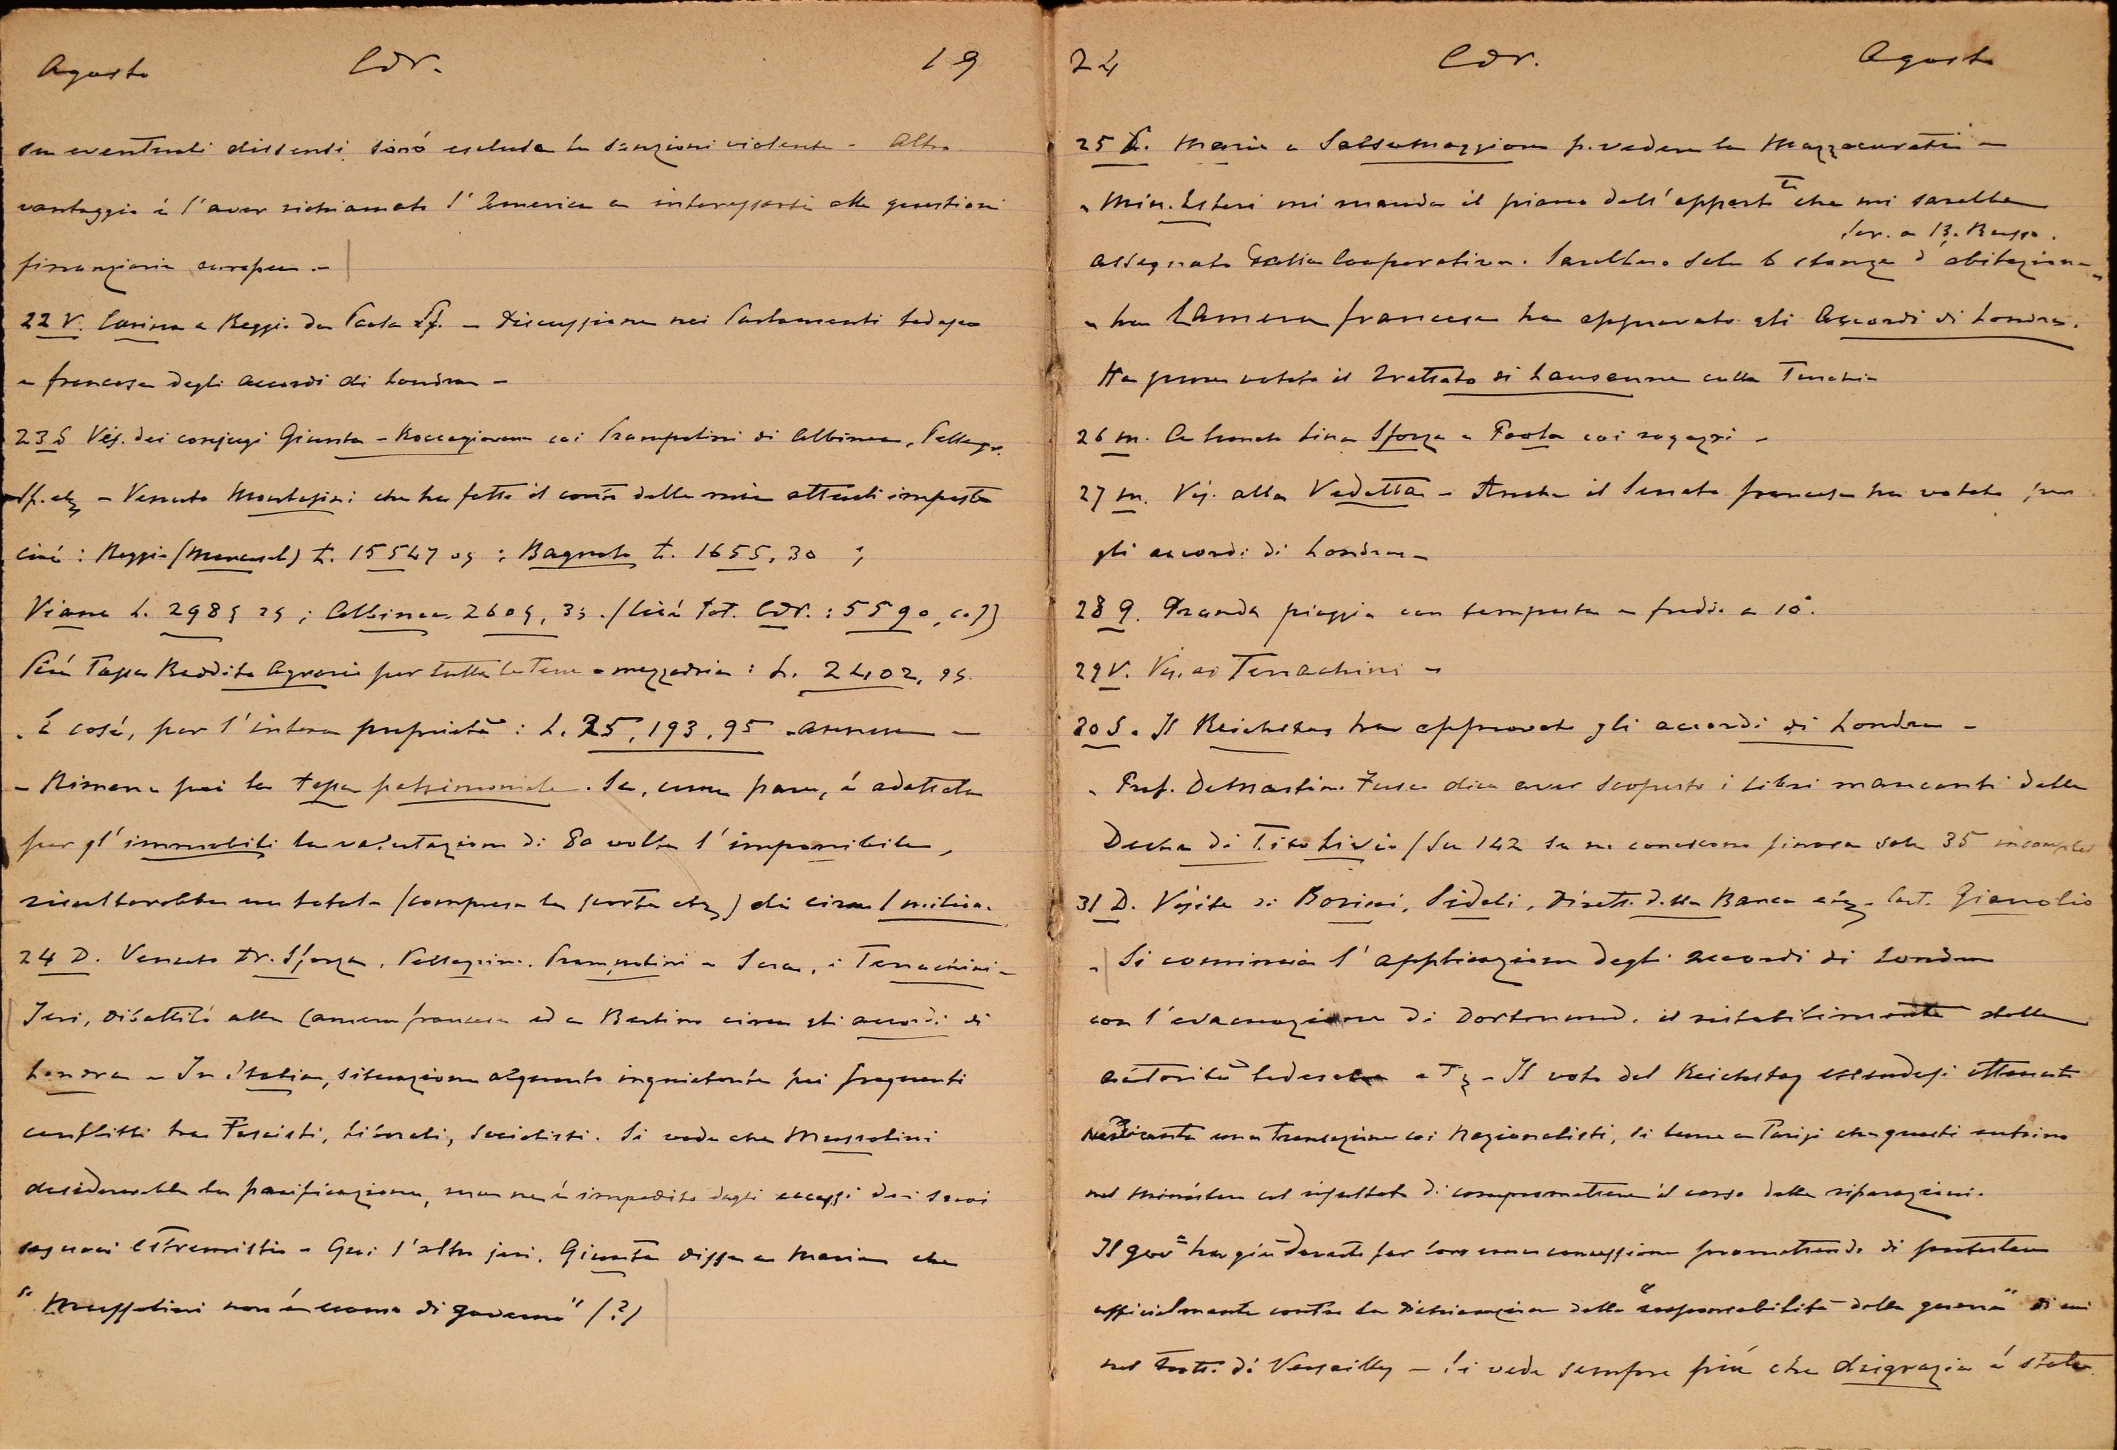 Agosto Cdr. 19
su eventuali dissensi, sono escluse le sanzioni violente - Altro
vantaggio è l'aver richiamato l'America a interessarsi alle questioni
finanziarie europee. -
22 V. Corina a Reggio da Paola Sf. - Discussione nei Parlamenti tedesco
e francese degli accordi di Londra -
23 S Vis. dei conjugi Giunta - Roccagiovane coi Prampolini di Albinea, Pellegr.
Sf. etc - Venuto Montasini che ha fatto il conto delle mie attuali imposte
cioè: Reggio (Mancasale) L. 15547 09 ; Bagnolo L. 1655,30 ;
Viano L. 2985 25 ; Albinea 2605, 35. (Cioè tot. Cdr. : 5590,60)
Più Tassa Reddito Agrario per tutte le terre a mezzadria : L. 2402, 95.
E così, per l'intera proprietà : L. 25,193,95 annue -
- Rimane poi la tassa patrimoniale. Se, come pare, è adottata
per gl'immobili la valutazione di 80 volte l'imponibile,
risulterebbe un totale (comprese le scorte etc) di circa 1 milione.
24 D. Venuto Dr. Sforza, Pellegrini, Prampolini e Sera, i Terrachini -
Ieri, dibattiti alla Camera francese ed a Berlino circa gli accordi di
Londra - In Italia, situazione alquanto inquietante pei frequenti
conflitti tra Fascisti, Liberali, Socialisti. Si vede che Mussolini
desidererebbe la pacificazione, ma ne è impedito dagli eccessi dei suoi
seguaci estremisti - Qui l'altro jeri, Giunta disse a Maria che
"Mussolini non è uomo di governo" (?)
24 Cdr. Agosto
25 L. Maria a Salsomaggiore p. vedere la Mazzacurati -
- Min. Esteri mi manda il piano dell'appartto che mi sarebbe
assegnato dalla Cooperativa. Sarebbero solo 6 stanze d'abitazione
- La Camera francese ha approvato gli Accordi di Londra.
Ha pure votato il Trattato di Lausanne colla Turchia
26 M. Lina Sforza e Paola coi ragazzi -
27 M. Vis. alla Vedetta - Anche il Senato francese ha votato per
gli accordi di Londra -
28 G. Grande pioggia con tempesta e freddo a 10°.
29 V. Vis. ai Terrachini -
30 S. Il Reichstag ha approvato gli accordi di Londra -
- Prof. De Martino Fusco dice aver scoperto i Libri mancanti delle
Deche di Tito Livio (Su 142 se ne conoscono finora solo 35 incompleti
31 D. Visite di Borini, Sidoli, Dirett. della Banca etc - Cart. Gianolio
- Si comincia l'applicazione degli accordi di Londra
con l'evacuazione di Dortmund, il ristabilimento delle
autorità tedesche etc - Il voto del Reichstag essendosi ottenuto
mediante una transazione coi Nazionalisti, si teme a Parigi che questi entrino
nel Ministero col risultato di compromettere il corso delle riparazioni.
Il govo ha già dovuto far loro una concessione promettendo di protestare
ufficialmente contro la dichiarazione della "responsabilità della guerra" di cui
nel Tratt. di Versailles - Si vede sempre più che disgrazia è stata